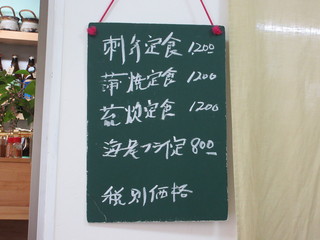 刺身定食 1200
蒲焼定食 1200
定食 1200
海老フライ定 800
税別価格